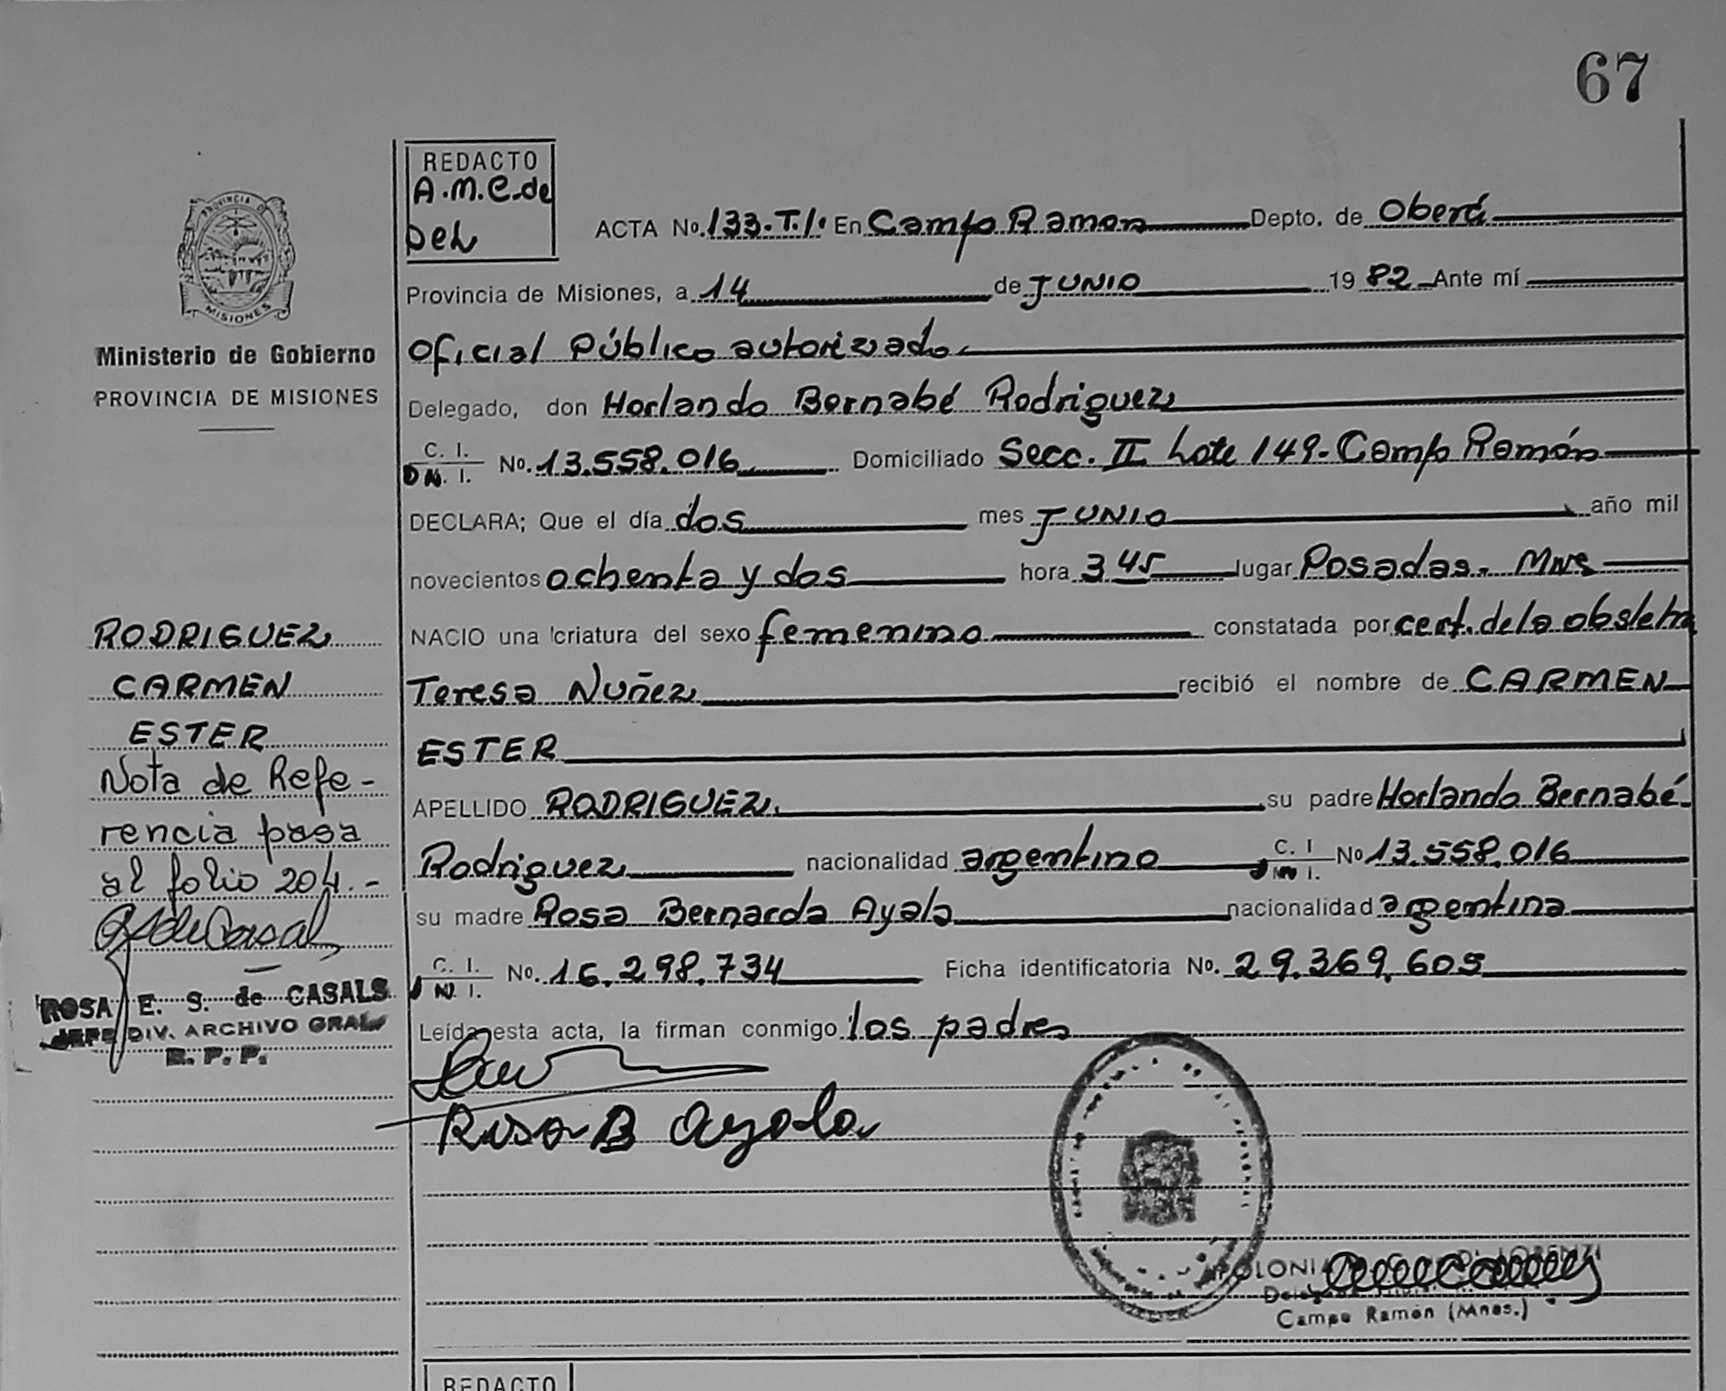 67
REDACTO
A.M.C. de
Del
ACTA No. 133.T.1. En Campo Ramon Depto. de Oberá
Provincia de Misiones, a 14 de JUNIO 1982 Ante mí
Oficial Público autorizado
Delegado, don Horlando Bernabé Rodriguez
C. I.
D N. I. No. 13.558.016 Domiciliado Secc. II Lote 149. Campo Ramón
DECLARA; Que el día dos mes JUNIO año mil
novecientos ochenta y dos hora 3 45 lugar Posadas. Mns
NACIO una criatura del sexo femenino constatada por cert. de la obstetra
Teresa Nuñez recibió el nombre de CARMEN
ESTER
APELLIDO RODRIGUEZ su padre Horlando Bernabé
Rodriguez nacionalidad argentino C. I N. I. No 13.558.016
su madre Rosa Bernarda Ayala nacionalidad argentina
C. I. N. I. No. 16.298.734 Ficha identificatoria No. 29.369.609
Leída esta acta, la firman conmigo los padres
Rosa B Ayala
POLONI
Campo Ramón (Mnes.)
REDACTO
PROVINCIA DE
MISIONES
Ministerio de Gobierno
PROVINCIA DE MISIONES
RODRIGUEZ
CARMEN
ESTER
Nota de Refe-
rencia pasa
al folio 204.-
ROSA E. S. de CASALS
JEFE DIV. ARCHIVO GRAL
R. P. P.